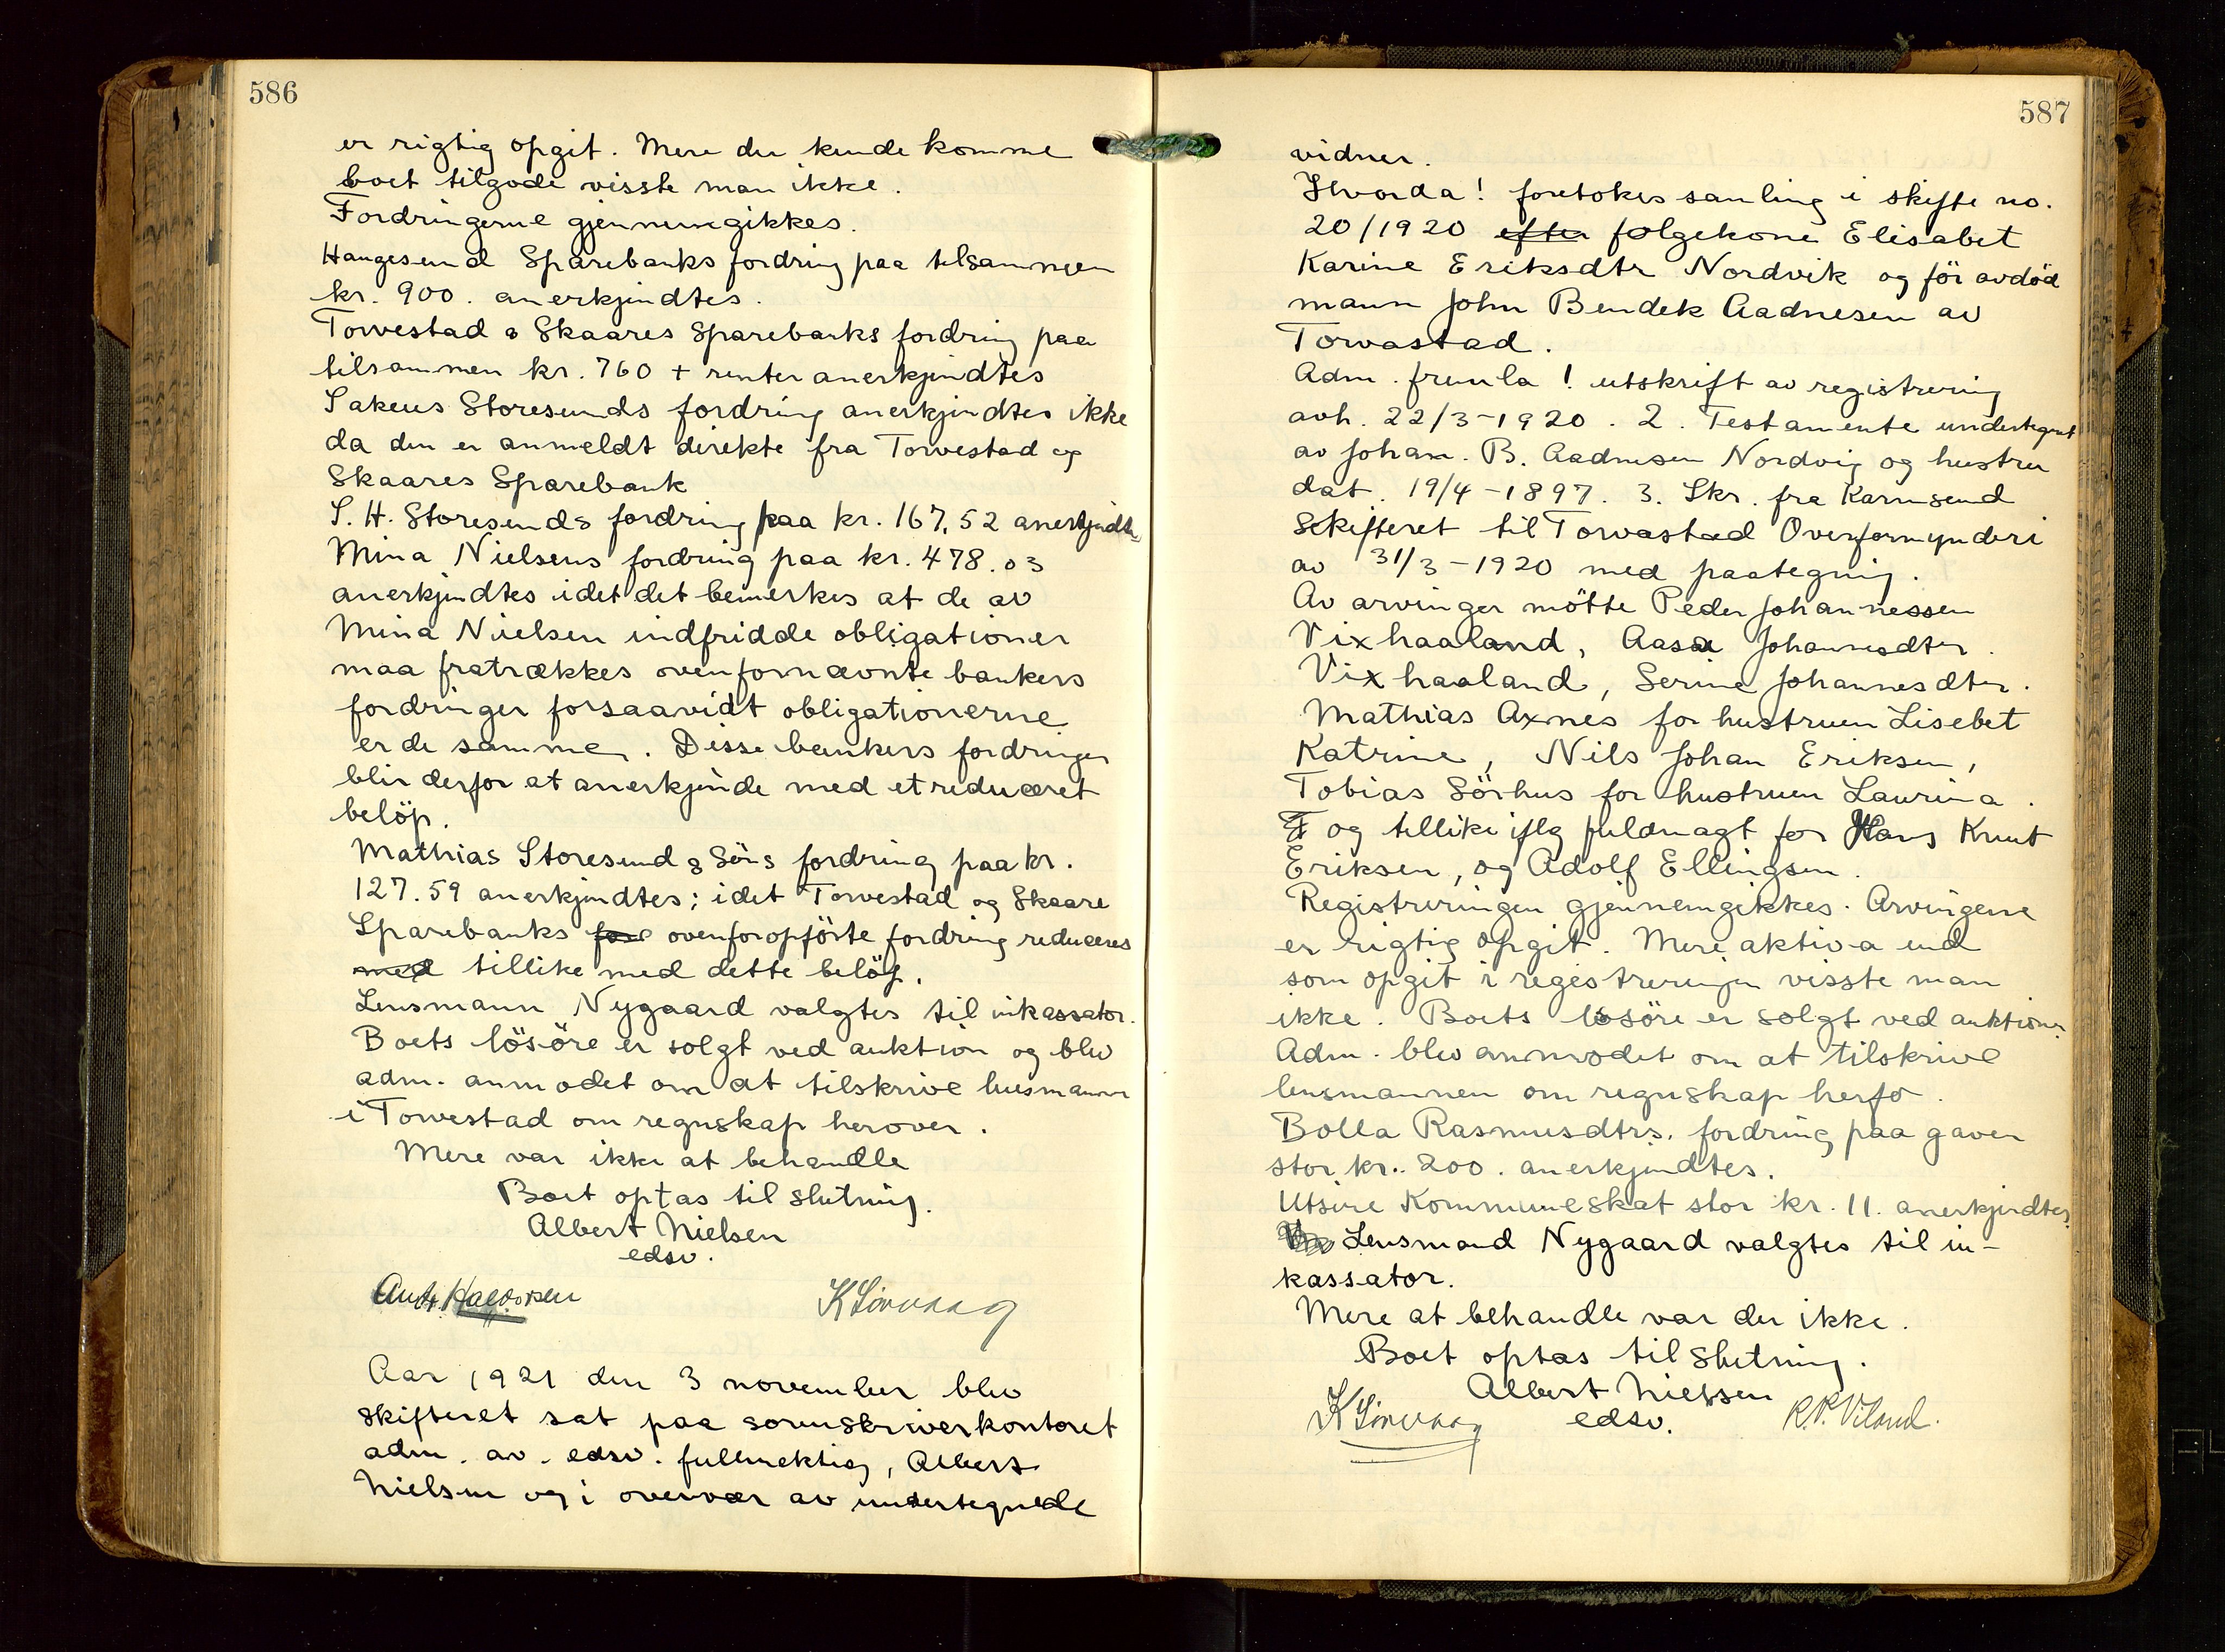 586
er rigtig opgit. Mere der kunde komme
boet tilgode visste man ikke.
Fordringerne gjennemgikkes.
Haugesund Sparebanks fordring paa tilsammen
kr. 900. anerkjendtes.
Torvestad & Skaares Sparebanks fordring paa
tilsammen kr. 760 + renter anerkjendtes
Sakeus Storesunds fordring anerkjendtes ikke
da den er anmeldt direkte fra Torvestad og
Skaares Sparebank
S. H. Storesunds fordring paa kr. 167,52 anerkjendtes
Mina Nielsens fordring paa kr. 478.03
anerkjendtes idet det bemerkes at de av
Mina Nielsen indfridde obligationer
maa fratrækkes ovenfornævnte bankers
fordringer forsaavidt obligationerne
er de samme. Disse bankers fordringer
blir derfor at anerkjende med et reduceret
beløp.
Mathias Storesund & Söns fordring paa kr.
127.59 anerkjendtes; idet Torvestad og Skaare
Sparebanks ovenforopförte fordring reduceres
med tillike med dette beløp.
Lensmann Nygaard valgtes til inkassator.
Boets lösöre er solgt ved auktion og blev
adm. anmodet om at tilskrive lensmannen
i Torvestad om regnskap herover.
Mere var ikke at behandle
Boet optas til slutning.
Albert Nielsen
edsv.
Halvorsen
Aar 1921 den 3 november blev
skifteret sat paa sorenskriverkontoret
adm. av. edsv. fullmektig, Albert
Nielsen og i overvær av undertegnede
587
vidner.
Hvorda! foretokes samling i skifte no.
20/1920 efter følgekone Elisabet
Karine Eriksdtr Nordvik og för avdöd
mann John Bendek Aadnesen av
Torvastad.
Adm. fremla 1. utskrift av registrering
avh. 22/3-1920. 2. Testamente undertegnet
av Johan. B. Aadnesen Nordvig og hustru
dat. 19/4-1897. 3. Skr. fra Karmsund
Skifteret til Torvastad Overformynderi
av 31/3-1920 med paategning.
Av arvinger mötte Peder Johannessen
Vixhaaland, Aasa Johannesdtr.
Vixhaaland, Serine Johannesdtr.
Mathias Axnes for hustruen Lisebet
Katrine, Nils Johan Eriksen,
Tobias Sörhus for hustruen Laurina.
og tillike iflg fuldmagt for Hans Knut
Eriksen, og Adolf Ellingsen.
Registreringen gjennemgikkes. Arvingerne
er rigtig opgit. Mere aktiva end
som opgit i registreringen visste man
ikke. Boets lösöre er solgt ved auktioner.
Adm. blev anmodet om at tilskrive
lensmannen om regnskap herfo.
Bolla Rasmusdtrs. fordring paa gaver
stor kr. 200. anerkjendtes.
Utsire Kommuneskat stor kr. 11. anerkjendtes.
Lensmand Nygaard valgtes til in-
kassator.
Mere at behandle var der ikke.
Boet optas til slutning.
Albert Nielsen
edsv.